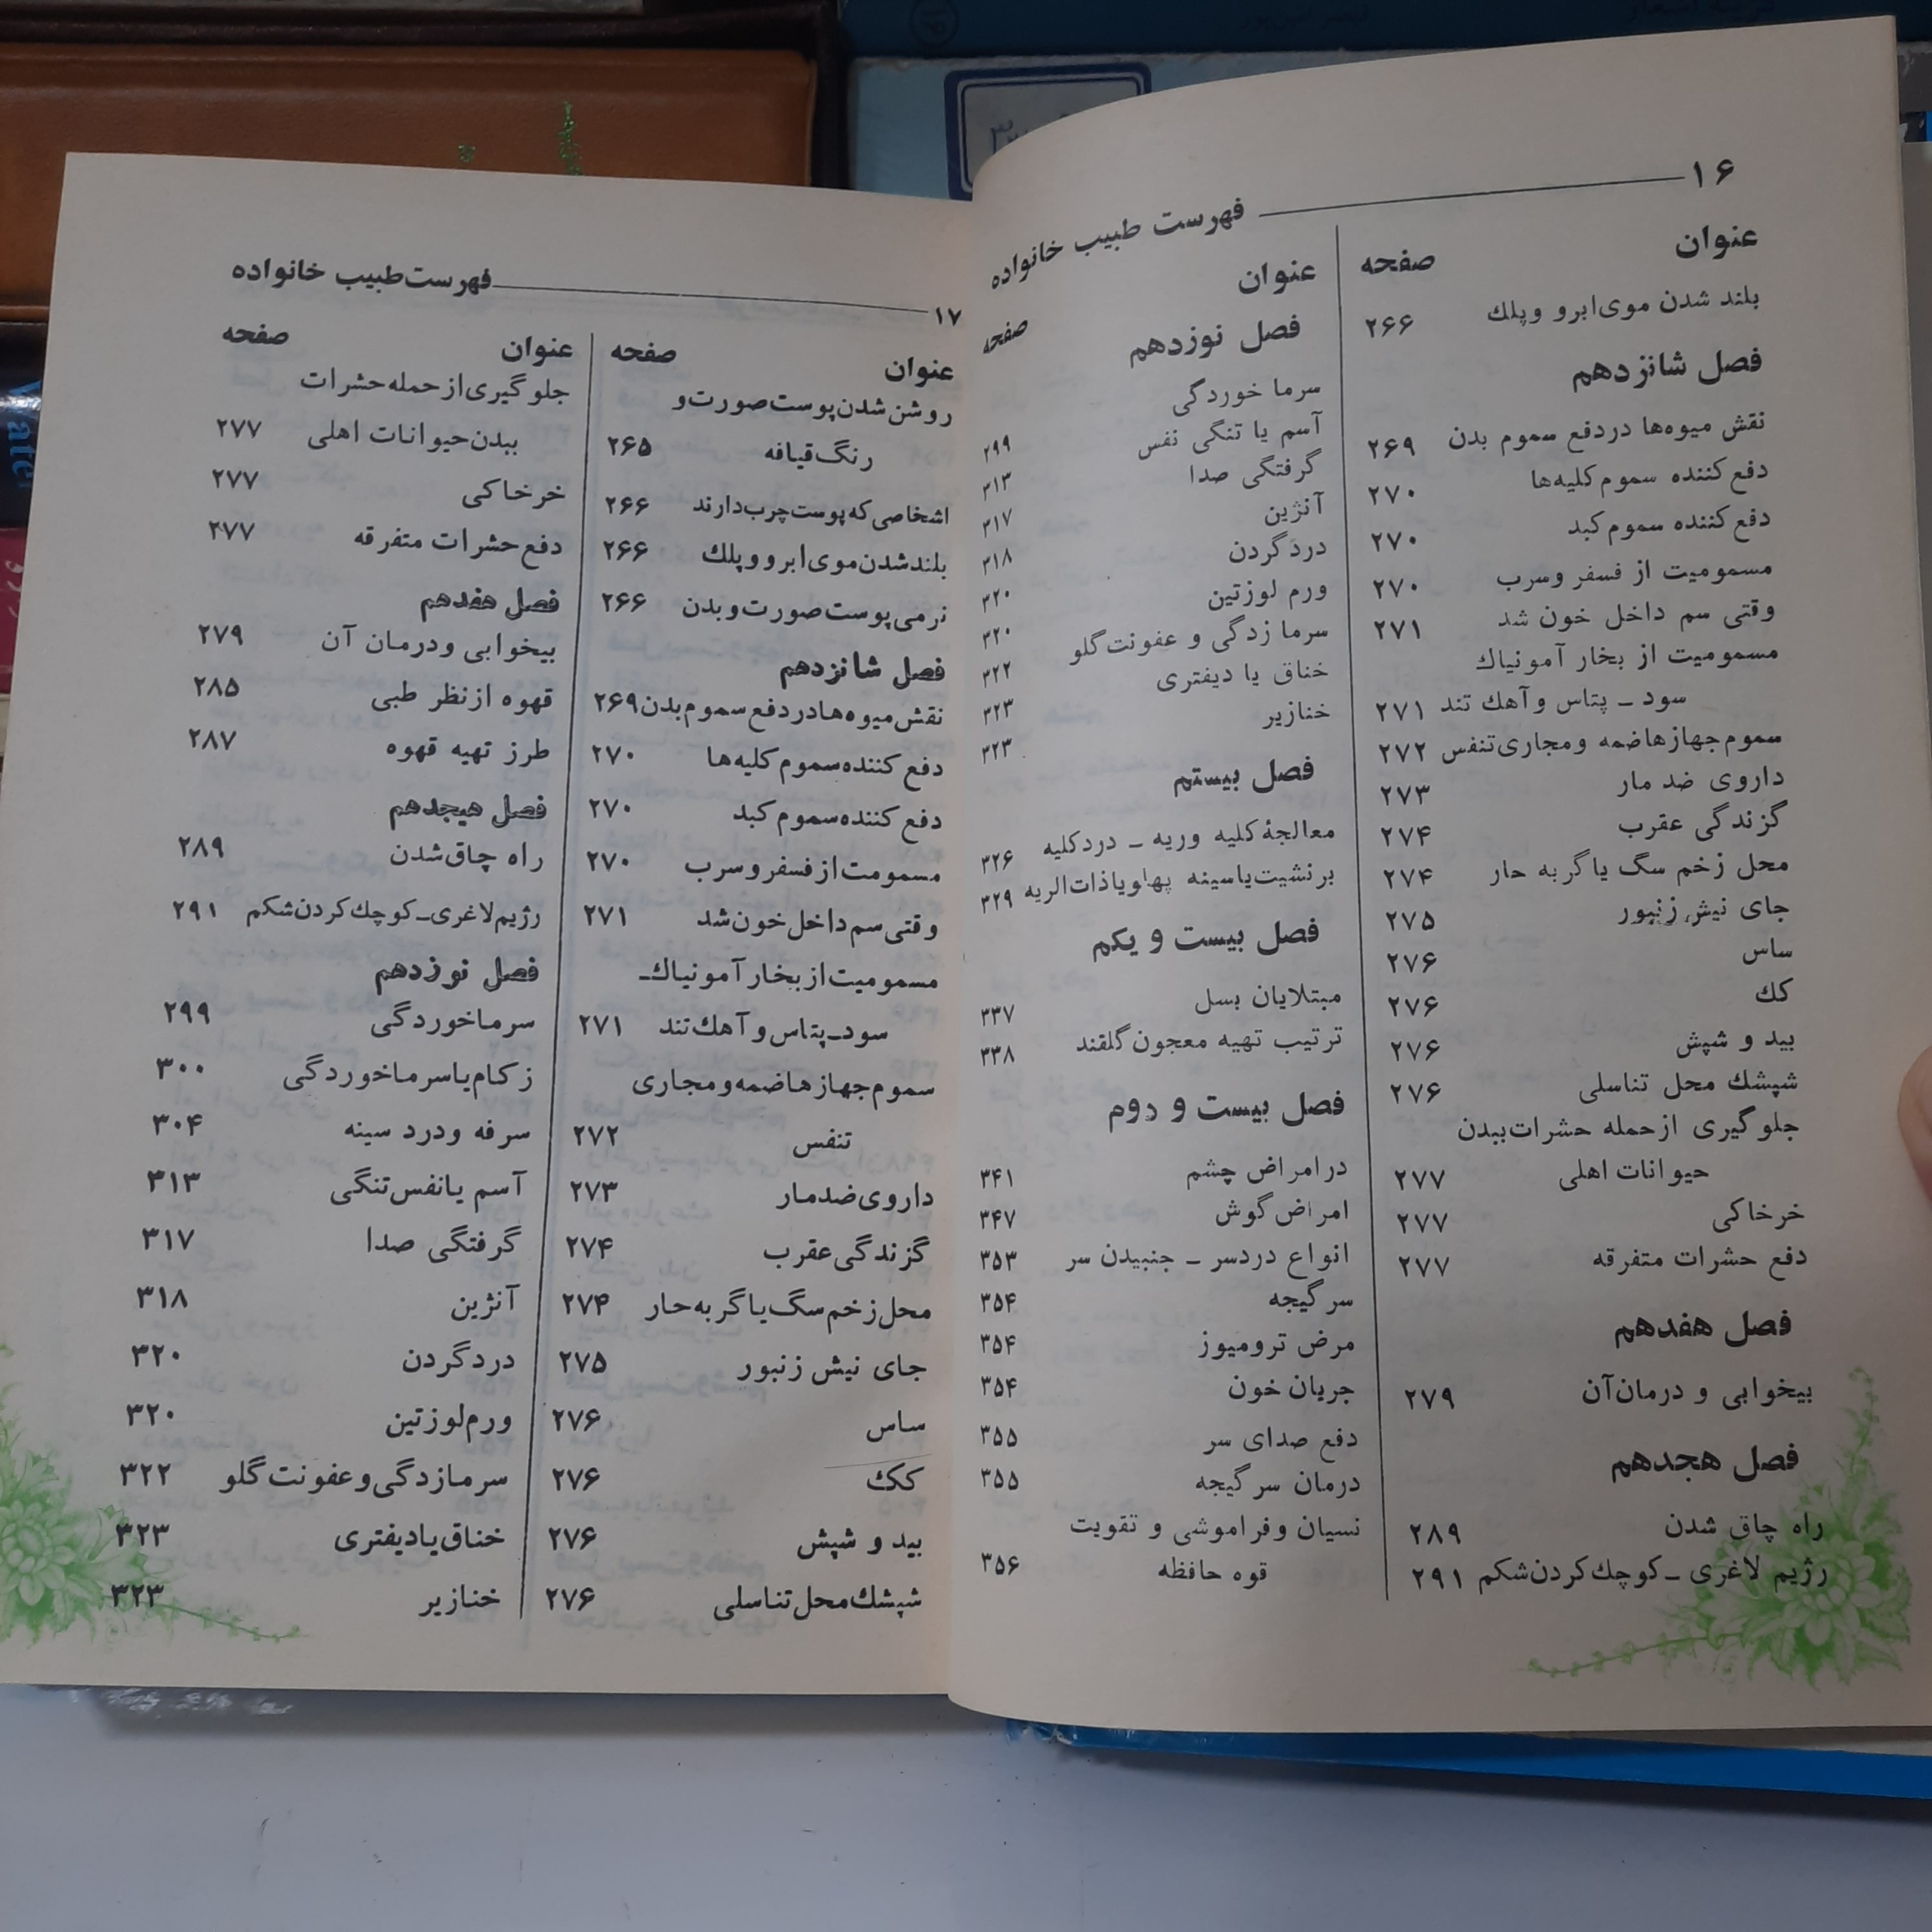 ۱۶
فهرست طبیب خانواده
عنوان صفحه
بلند شدن موی‌ابرو وپلك ۲۶۶
فصل شانزدهم
نقش میوه‌ها دردفع سموم بدن ۲۶۹
دفع‌کننده سموم‌کلیه‌ها ۲۷۰
دفع‌کننده سموم‌کبد ۲۷۰
مسمومیت از فسفر وسرب ۲۷۰
وقتی سم داخل خون شد ۲۷۱
مسمومیت از بخار آمونیاك
سود ـ پتاس وآهك تند ۲۷۱
سموم‌جهازهاضمه ومجاری‌تنفس ۲۷۲
داروی ضد مار ۲۷۳
گزندگی عقرب ۲۷۴
محل زخم سگ یاگربه حار ۲۷۴
جای نیش زنبور ۲۷۵
ساس ۲۷۶
كك ۲۷۶
بید و شپش ۲۷۶
شپشك محل تناسلی ۲۷۶
جلوگیری ازحمله حشرات‌ببدن
حیوانات اهلی ۲۷۷
خرخاکی ۲۷۷
دفع حشرات متفرقه ۲۷۷
فصل هفدهم
بیخوابی و درمان‌آن ۲۷۹
فصل هجدهم
راه چاق شدن ۲۸۹
رژیم لاغری ـ‌كوچك‌كردن‌شكم ۲۹۱
عنوان صفحه
فصل نوزدهم
سرما خوردگی ۲۹۹
آسم یا تنگی نفس ۳۱۳
گرفتگی صدا ۳۱۷
آنژین ۳۱۸
دردگردن ۳۲۰
ورم لوزتین ۳۲۰
سرما زدگی و عفونت‌گلو ۳۲۲
خناق یا دیفتری ۳۲۳
خنازیر ۳۲۳
فصل بیستم
معالجهٔ‌کلیه وریه ـ دردکلیه ۳۲۶
برنشیت‌یاسینه پهلویاذات‌الریه ۳۲۹
فصل بیست و یکم
مبتلایان بسل ۳۳۷
ترتیب تهیه معجون‌گلقند ۳۳۸
فصل بیست و دوم
درامراض چشم ۳۴۱
امراض‌گوش ۳۴۷
انواع دردسر ـ جنبیدن سر ۳۵۳
سرگیجه ۳۵۴
مرض ترومبوز ۳۵۴
جریان خون ۳۵۴
دفع صدای سر ۳۵۵
درمان سرگیجه ۳۵۵
نسیان وفراموشی و تقویت
قوه حافظه ۳۵۶
۱۷
فهرست‌طبیب خانواده
عنوان صفحه
روشن‌شدن‌پوست‌صورت‌و
رنگ‌قیافه ۲۶۵
اشخاصی‌که‌پوست‌چرب‌دارند ۲۶۶
بلندشدن‌موی‌ابرووپلك ۲۶۶
نرمی‌پوست‌صورت‌وبدن ۲۶۶
فصل شانزدهم
نقش‌میوه‌هادردفع‌سموم‌بدن ۲۶۹
دفع‌کننده‌سموم‌کلیه‌ها ۲۷۰
دفع‌کننده‌سموم‌کبد ۲۷۰
مسمومت‌ازفسفروسرب ۲۷۰
وقتی‌سم‌داخل‌خون‌شد ۲۷۱
مسمومیت‌ازبخارآمونیاك‌ـ
سود‌ـ‌پتاس‌وآهك‌تند ۲۷۱
سموم‌جهازهاضمه‌ومجاری
تنفس ۲۷۲
داروی‌ضدمار ۲۷۳
گزندگی‌عقرب ۲۷۴
محل‌زخم‌سگ‌یاگربه‌حار ۲۷۴
جای نیش زنبور ۲۷۵
ساس ۲۷۶
كك ۲۷۶
بید و شپش ۲۷۶
شپشك‌محل‌تناسلی ۲۷۶
عنوان صفحه
جلوگیری‌ازحمله‌حشرات
ببدن‌حیوانات اهلی ۲۷۷
خرخاکی ۲۷۷
دفع‌حشرات متفرقه ۲۷۷
فصل هفدهم
بیخوابی ودرمان آن ۲۷۹
قهوه ازنظر طبی ۲۸۵
طرز تهیه قهوه ۲۸۷
فصل هیجدهم
راه چاق‌شدن ۲۸۹
رژیم‌لاغری‌ـ‌كوچك‌كردن‌شكم ۲۹۱
فصل نوزدهم
سرماخوردگی ۲۹۹
زکام‌یاسرماخوردگی ۳۰۰
سرفه ودرد سینه ۳۰۴
آسم یانفس‌تنگی ۳۱۳
گرفتگی صدا ۳۱۷
آنژین ۳۱۸
دردگردن ۳۲۰
ورم‌لوزتین ۳۲۰
سرمازدگی‌وعفونت‌گلو ۳۲۲
خناق‌یادیفتری ۳۲۳
خنازیر ۳۲۳